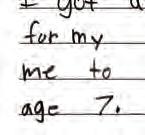 I got a
for my
me to
age 7.